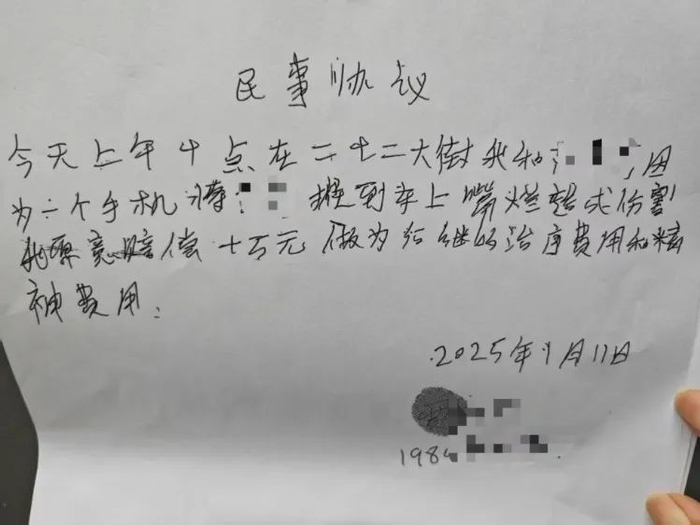 民事协议
今天上午十点在二七二大街我和,因
为一个手机将 推到车上嘴烂造成伤害
我愿意赔偿十万元做为后继的治疗费用和精
神费用。
2025年9月11日
198